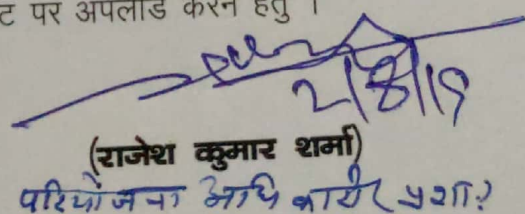 ट पर अपलोड करने हेतु ।
2/8/19
(राजेश कुमार शर्मा)
परियोजना अधिकारी प्रशा.